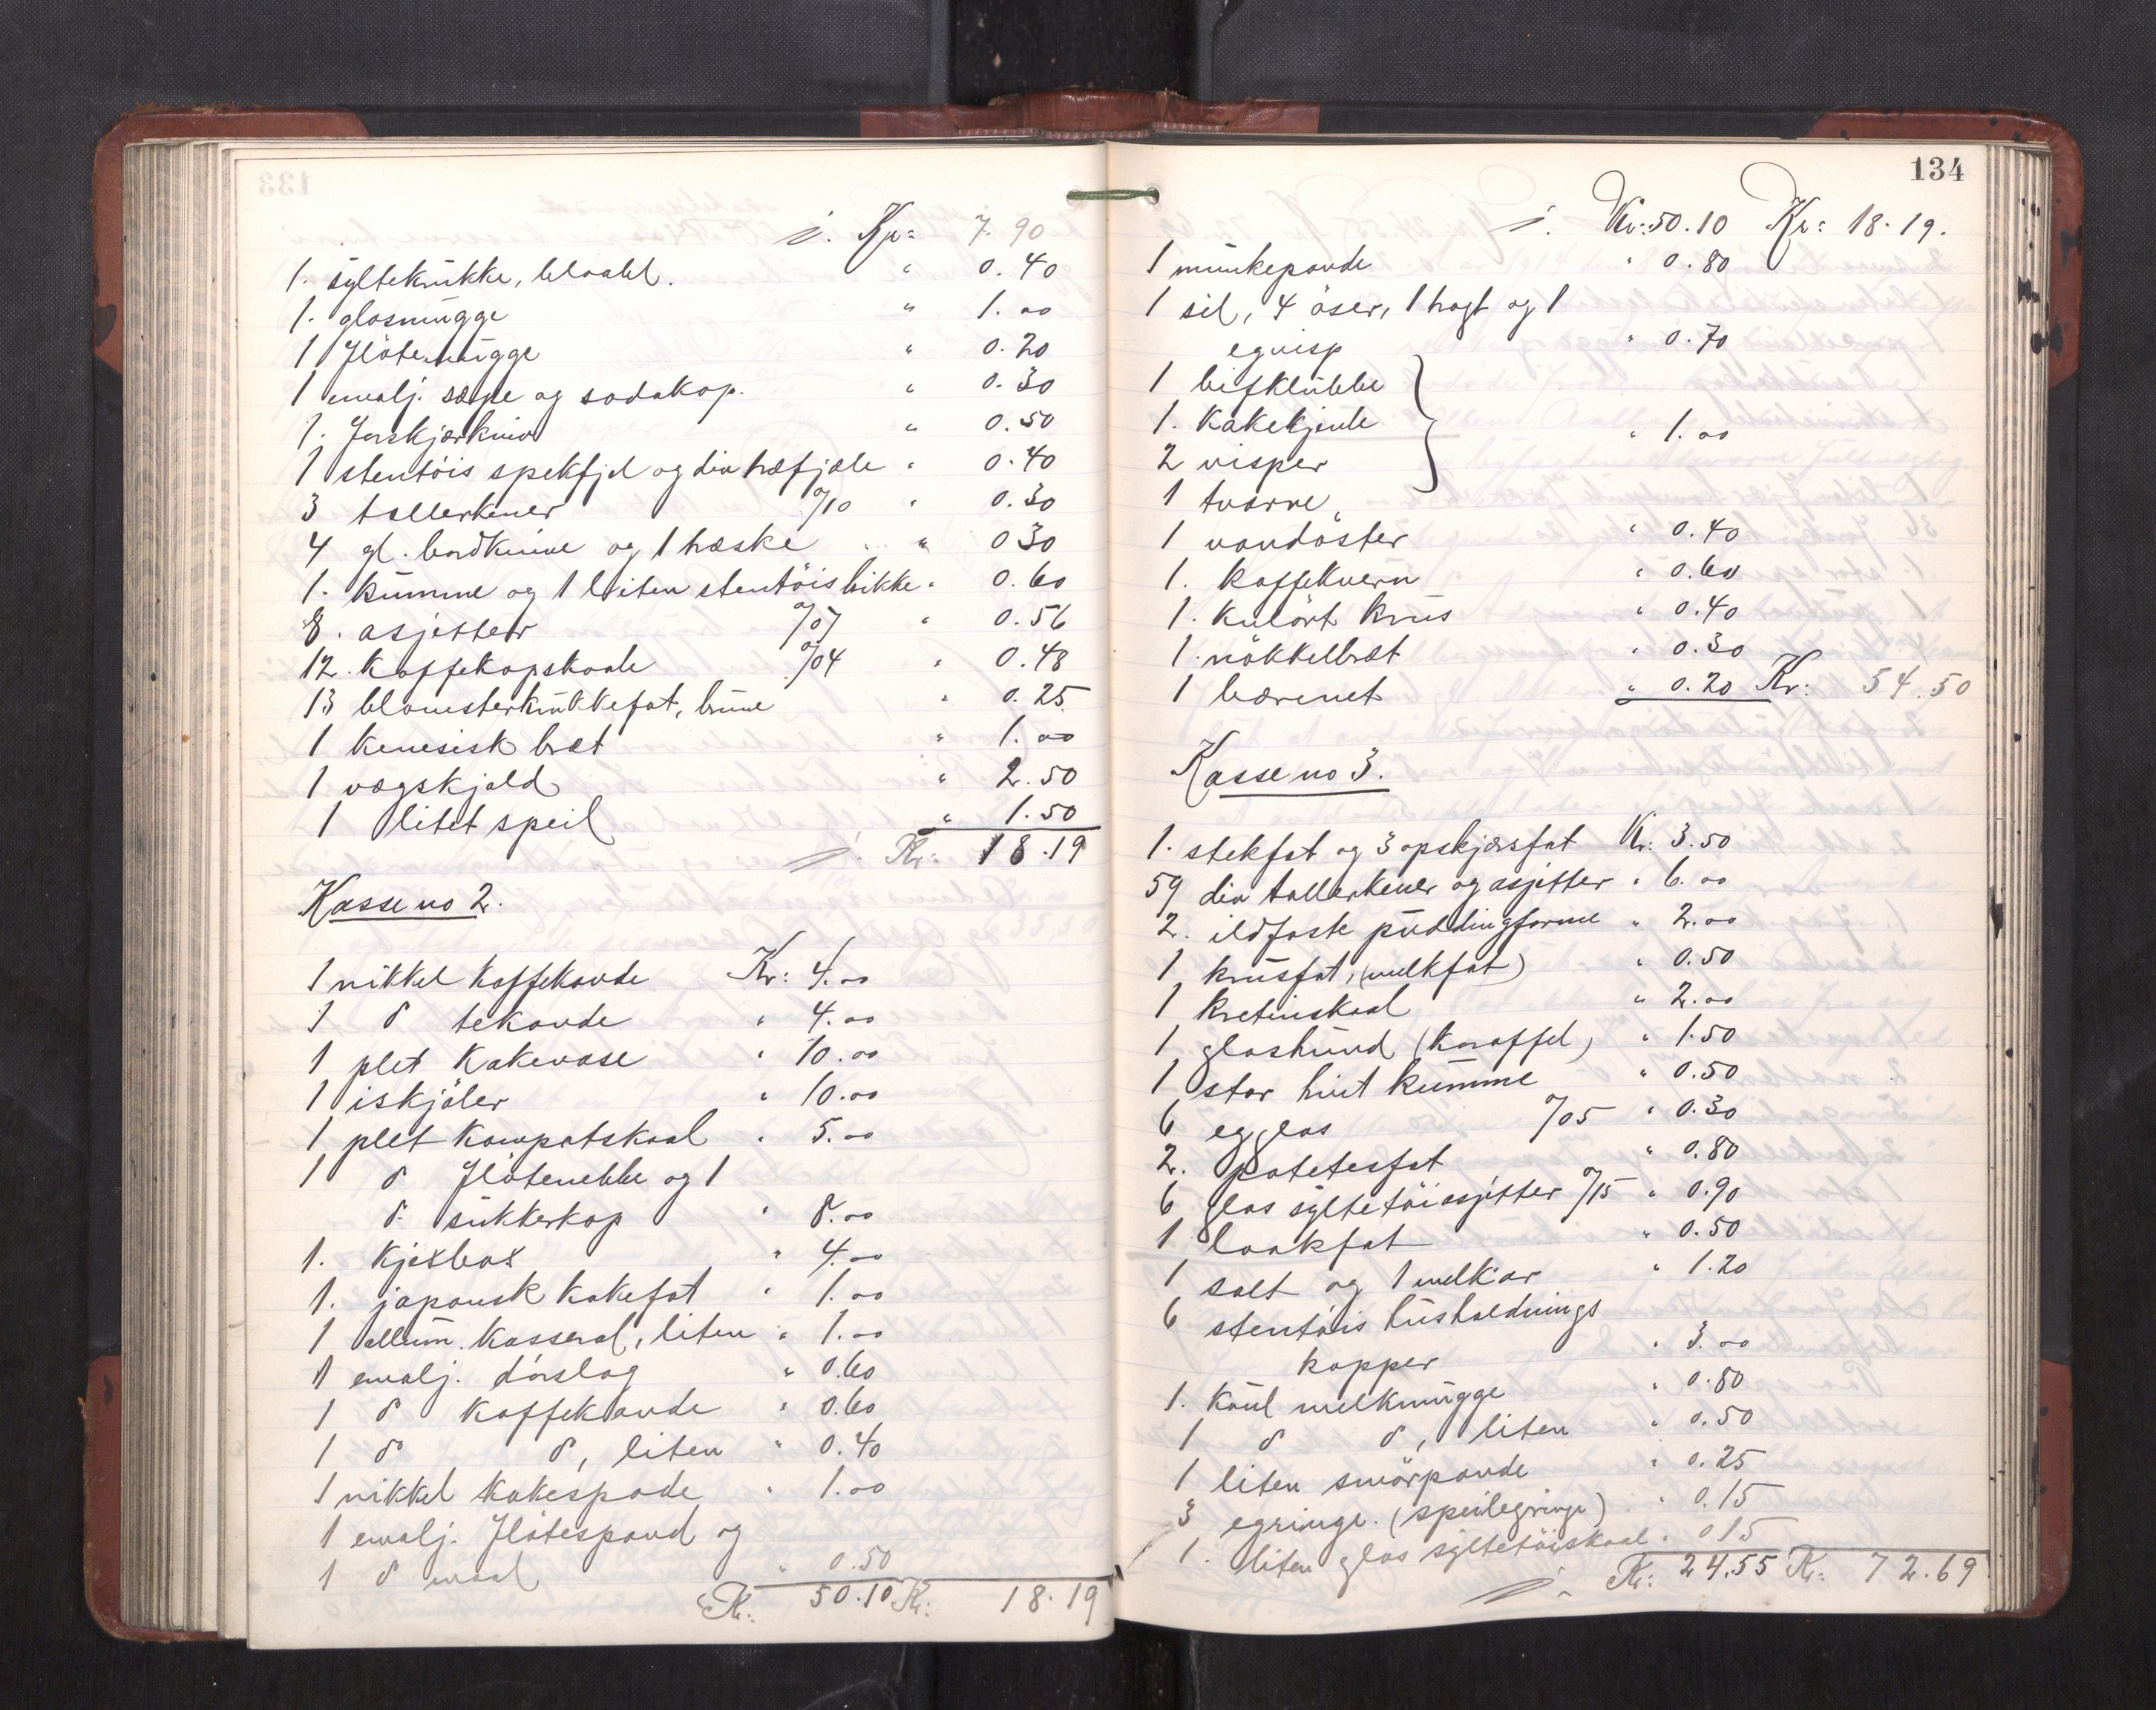 i. Kr: 7.90
1. syltekrukke, blaabl. " 0.40
1. glasmugge " 1.00
1 Fløtemugge " 0.20
1 emalj. sæpe og sodakop. " 0.30
1. Forskjærkniv " 0.50
1 stentöis spekfjel og div træfjæle " 0.40
3 tallerkener a/10 " 0.30
4 gl. bordknive og 1 træske " 030
1. kumme og 1 liten stentöis bikke " 0.60
8. asjetter a/07 " 0.56
12. Kaffekopskaale a/04 " 0.48
13 blomsterkrukkefat, brune " 0.25
1 kinesisk bret " 1.00
1 vægskjold " 2.50
1 litet speil " 1.50
i. Kr: 18.19
Kasse no 2.
1 nikkel Kaffekande Kr: 4.00
1 do tekande " 4.00
1 plet Kakevase " 10.00
1 iskjöler " 10.00
1 plet Kompotskaal " 5.00
1 do Flötenebbe og 1
do sukkerkop " 8.00
1. Kjexbox " 4.00
1. japansk kakefat " 1.00
1 allum. Kasserol, liten " 1.00
1 emalj. dørslag " 0.60
1 do Kaffekande " 0.60
1 do do, liten " 0.40
1 nikkel Kakespade " 1.00
1 emalj. Flötespand og
1 do maal " 0.50
Kr: 50.10 Kr: 18.19
134
i. Kr: 50.10 Kr: 18.19.
1 munkepande " 0.80
1 sil, 4 öser, 1 tragt og 1
egvisp " 0.70
1 bifklubbe
1. Kakekjevle " 1.00
2 visper
1 tvarre
1 vandöster " 0.40
1. Kaffekvern " 0.60
1. Kulört Krus " 0.40
1. nökkelbret " 0.30
1 bærenet " 0.20 Kr: 54.50
Kasse no 3.
1. stekfat og 3 opskjærsfat Kr: 3.50
59 div tallerkener og asjetter " 6.00
2. ildfaste puddingforme " 2.00
1 krusfat, (melkfat) " 0.50
1 kretinskaal " 2.00
1 glashund (Karaffel) " 1.50
1 stor hvit kumme " 0.50
6 egglas a/05 " 0.30
2. potetesfat " 0.80
6 glas syltetöiasjetter a/15 " 0.90
1 laakfat " 0.50
1 salt og 1 melkar " 1.20
6 stentöis husholdnings
kopper " 3.00
1. Köul melkmugge " 0.80
1 do do, liten " 0.50
1 liten smörpande " 0.25
3 egringe. (speilegringe) " 0.15
1. liten glas syltetöiskaal " 015
i. Kr: 24.55 Kr: 72.69